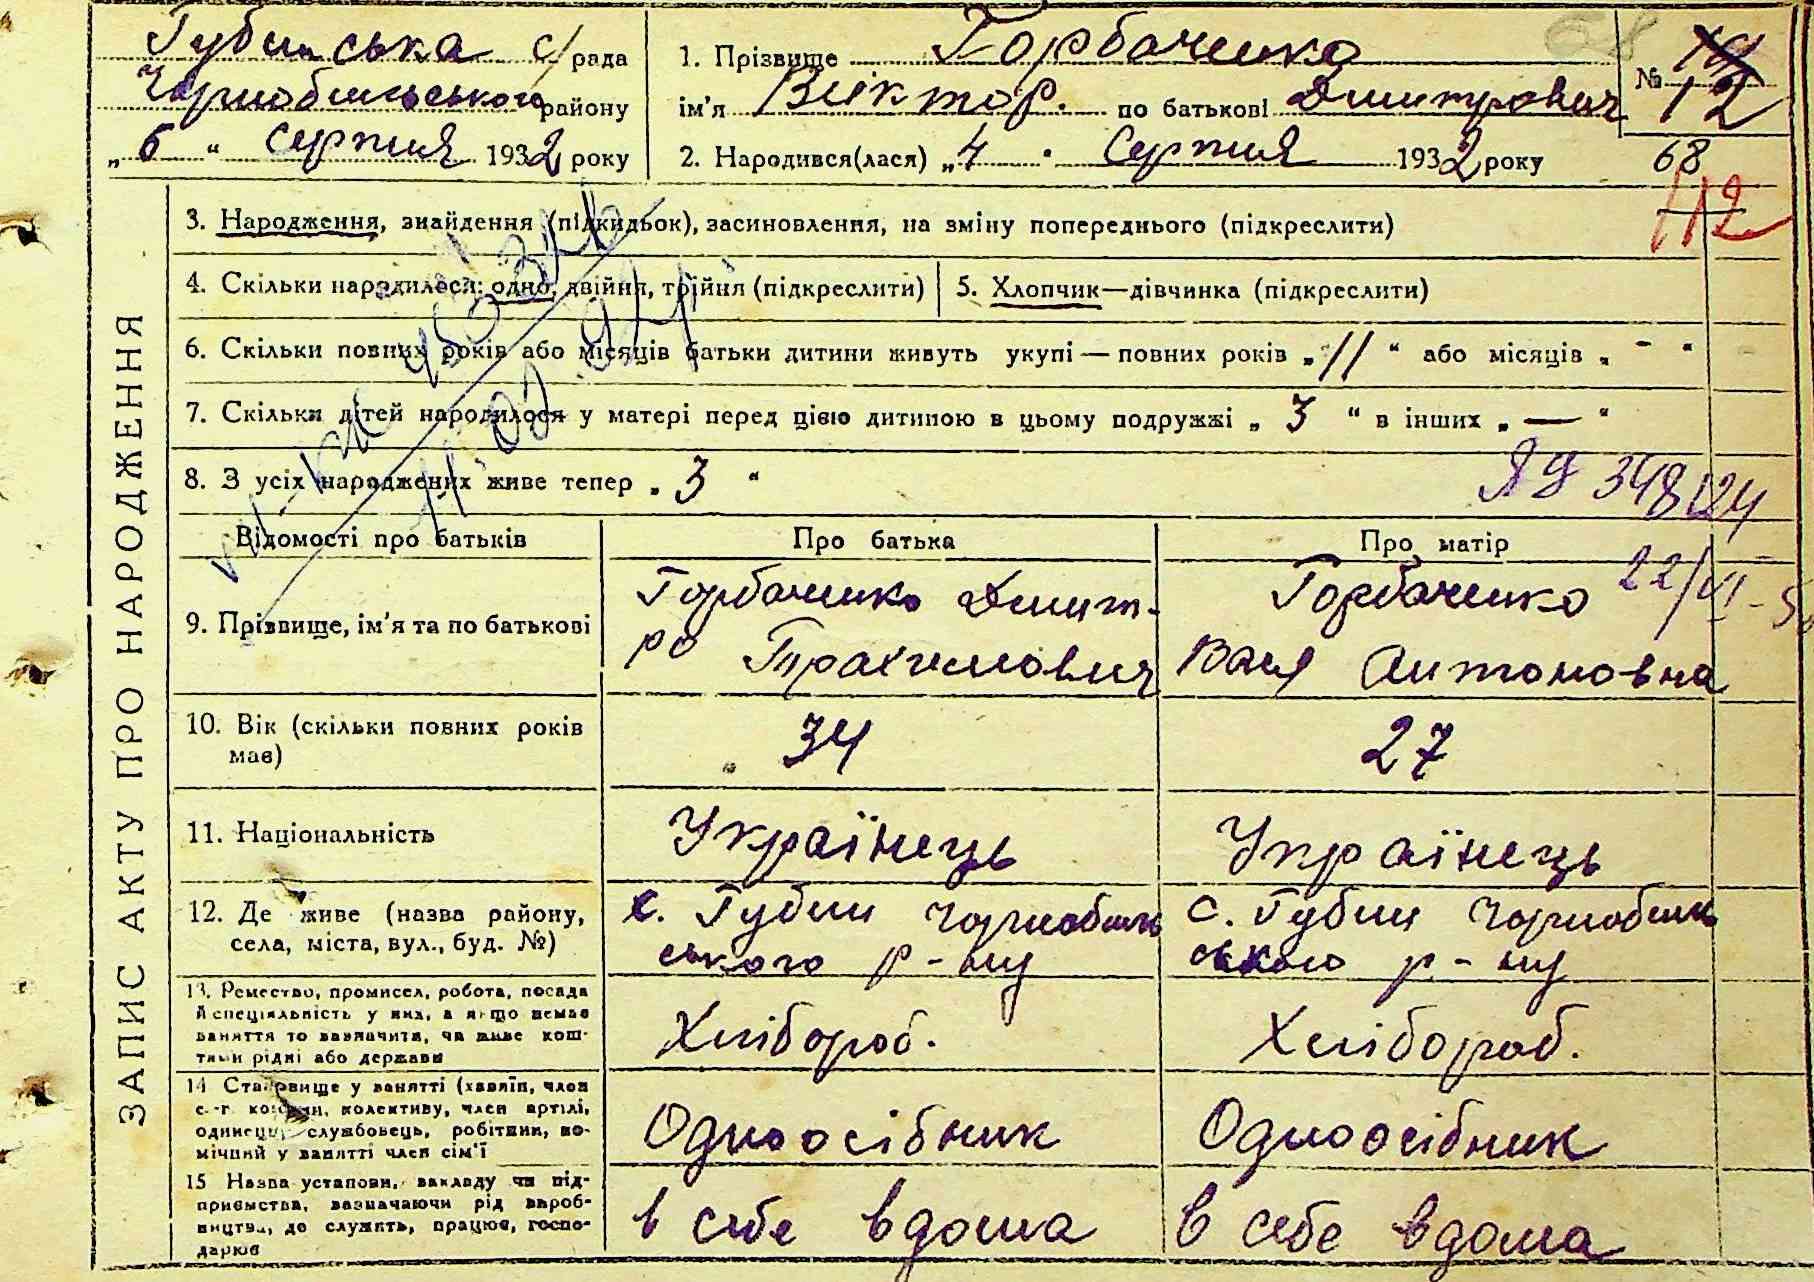 Губинська с/рада
Чорнобильського району
„6“ Серпня 1932 року
1. Прізвище Горбаченко
ім'я Віктор. по батькові Дмитрович
2. Народився(лася) „4“ Серпня 1932 року
№ 12
68
112
ЗАПИС АКТУ ПРО НАРОДЖЕННЯ
3. Народження, знайдення (підкидьок), засиновлення, на зміну попереднього (підкреслити)
4. Скільки народилося: одно, двійня, трійня (підкреслити)
5. Хлопчик—дівчинка (підкреслити)
6. Скільки повних років або місяців батьки дитини живуть укупі — повних років „11“ або місяців „-“
7. Скільки дітей народилося у матері перед цією дитиною в цьому подружжі „3“ в інших „—“
8. З усіх народжених живе тепер „3“
348124
22/VI-
Відомості про батьків
Про батька
Про матір
9. Прізвище, ім'я та по батькові
Горбаченко Дмит-
ро Трахимович
Горбаченко
Антоновна
10. Вік (скільки повних років
має)
34
27
11. Національність
Українець
Українець
12. Де живе (назва району,
села, міста, вул., буд. №)
с. Губин Чорнобиль
ського р-ну
с. Губин Чорнобиль
ського р-ну
13. Ремество, промисел, робота, посада
й спеціяльність у них, а якщо немає
заняття то зазначити, чи живе кош-
тами рідні або держави
Хлібороб.
Хлібороб.
14. Становище у занятті (хазяїн, член
с.-г. комуни, колективу, член артілі,
одинець, службовець, робітник, по-
мічний у занятті член сім'ї
Одноосібник
Одноосібник
15 Назва установи, закладу чи під-
приємства, зазначаючи рід вироб-
ництва, де служить, працює, госпо-
дарює
в себе вдома
в себе вдома